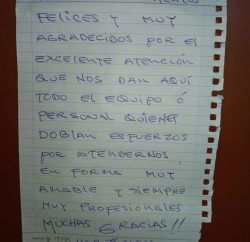 FELICES Y MUY
AGRADECIDOS POR EL
EXCELENTE ATENCIÓN
QUE NOS DAN AQUÍ
TODO EL EQUIPO Ó
PERSONAL QUIENES
DOBLAN ESFUERZOS
POR ATENDERNOS
EN FORMA MUY
AMABLE Y SIEMPRE
MUY PROFESIONALES
MUCHAS GRACIAS!!